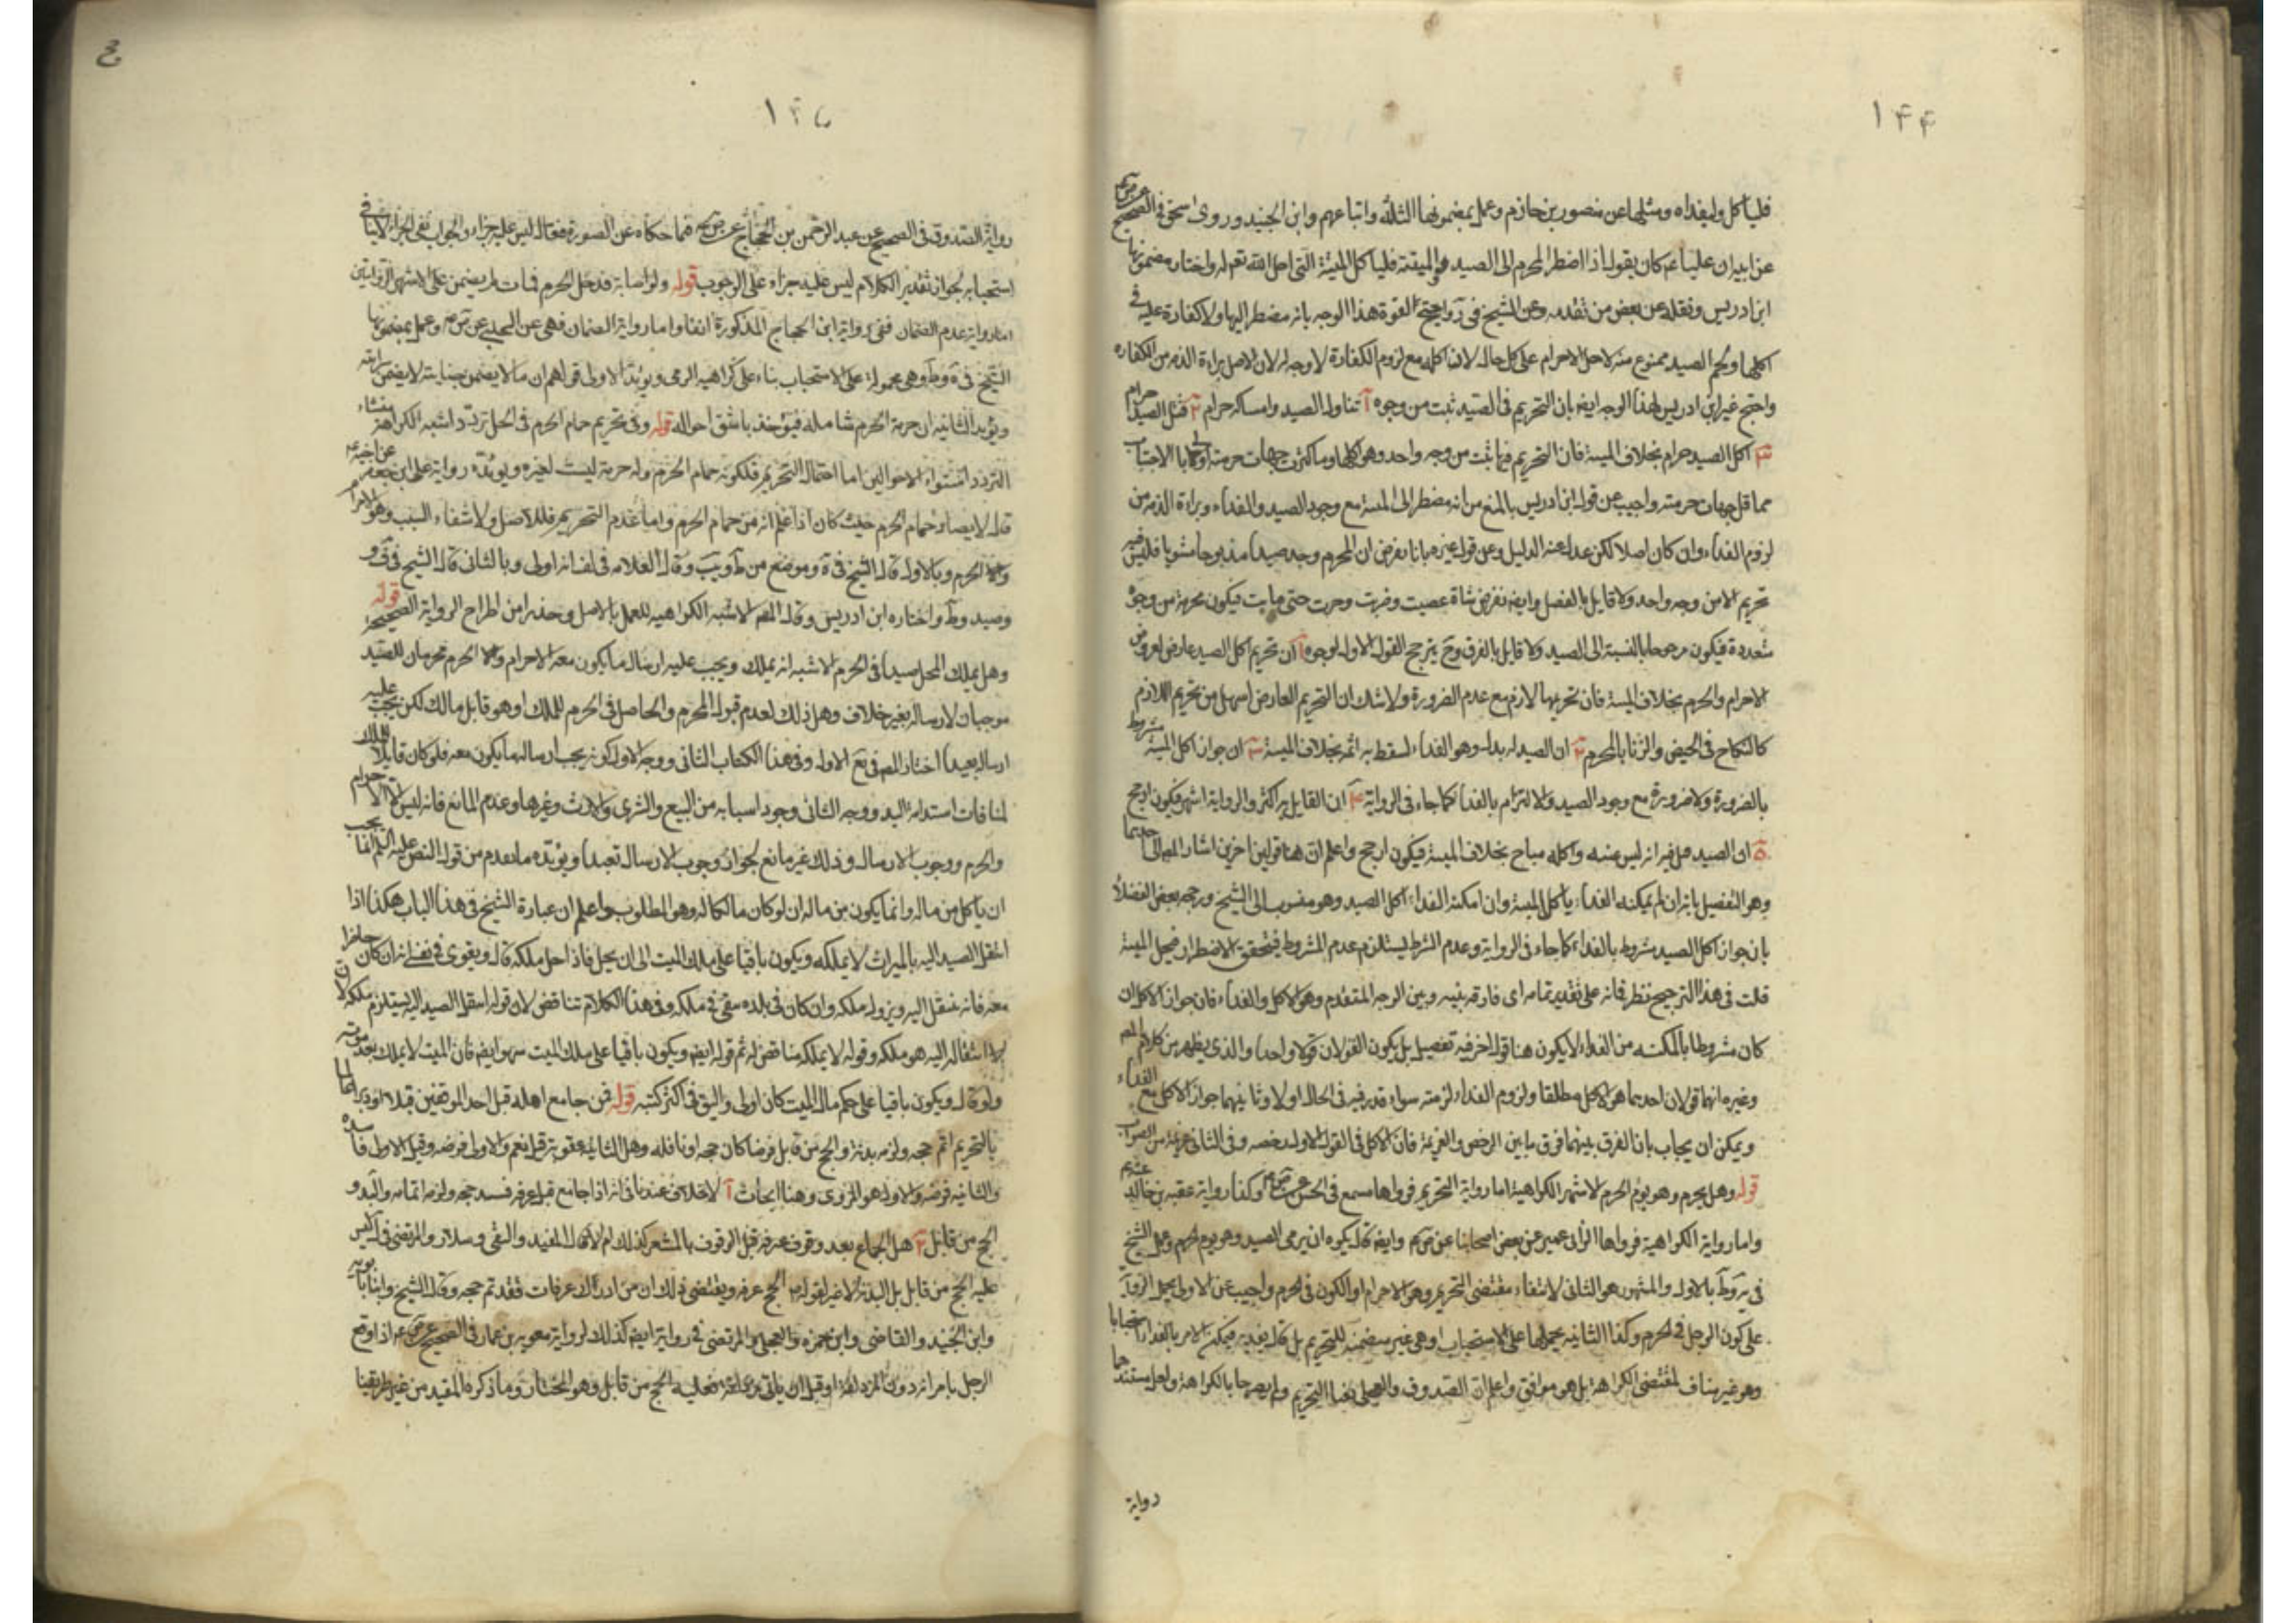 ١٤٤
فليأكل وليفداه ومثلها عن منصور بن حازم وعمل بمضمونها الثلثه واتباعهم وابن الجنيد وروى اسحق فى الصحيح
عن ابيه ان عليا عم كان يقول اذا اضطر المحرم الى الصيد والميتة فليأكل الميتة التى احل الله تعم له واختار مضمونها
ابن ادريس ونقله عن بعض من تقدمه وعن الشيخ فى هذا الوجه بانه مضطر اليها ولا كفارة عليه فى
اكلها ولحم الصيد ممنوع منه لاجل الاحرام على كل حال لان اكله مع لزوم الكفارة لا وجه له لان الاصل براءة الذمه من الكفاره
واحتج غير ابن ادريس لهذا الوجه ايضا بان التحريم فى الصيد ثبت من وجوه آ تناول الصيد وامساكه حرام ٢ قتل الصيد حرام
٣ اكل الصيد حرام بخلاف الميتة فان التحريم فيها ثبت من وجه واحد وهو اكلها وما كثرت جهات حرمته اولى بالاجتناب
مما قل جهات حرمته واجيب عن قول ابن ادريس بالمنع من انه مضطر الى الميتة مع وجود الصيد والفداء وبراءة الذمه من
لزوم الفداء وان كان اصلا لكن عدل عنه الدليل وعن قول غيره بانا نفرض ان المحرم وجد صيدا مذبوحا مشويا فليس فيه
تحريم الا من وجه واحد ولا قايل بالفصل وايضا نفرض شاة غصبت وضربت وجرت حتى ماتت فيكون تحريمه من وجوه
متعددة فيكون مرجوحا بالنسبة الى الصيد ولا قايل بالفرق وح يترجح القول الاول لوجوه آ ان تحريم اكل الصيد عارض لعروض
الاحرام والحرم بخلاف الميتة فان تحريمها لازم مع عدم الضرورة ولا شك ان التحريم العارض اسهل من تحريم اللازم
كالنكاح فى الحيض والزنا بالمحرم ٢ ان الصيد له بدل وهو الفداء لسقط به اثمه بخلاف الميتة ٣ ان جواز اكل الميتة مشروط
بالضرورة ولا ضرورة مع وجود الصيد والالتزام بالفداء كما جاء فى الرواية ٤ ان القايل به اكثر والرواية اشهر فيكون ارجح
٥ ان الصيد قيل فيه انه ليس عنه واكله مباح بخلاف الميتة فيكون ارجح واعلم ان هنا قولين اخرين اشار المص الى احدهما
وهو التفصيل بانه ان لم يمكنه الفداء يأكل الميتة وان امكنه الفداء اكل الصيد وهو منسوب الى الشيخ ورجحه بعض الفضلاء
بان جواز اكل الصيد مشروط بالفداء كما جاء فى الرواية وعدم الشرط يستلزم عدم المشروط فيتحقق الاضطرار فيحل الميتة
قلت فى هذا الترجيح نظر فانه على تقدير تمامه اى فارقه بينه وبين الوجه المتقدم وهو الاكل والفداء فان جواز الاكل ان
كان مشروطا بالمكنه من الفداء لا يكون هنا قول اخر فيه تفصيل بل يكون القولان قولا واحدا والذى يظهر من كلام المص
وغيره انهما قولان احدهما هو الاكل مطلقا ولزوم الفداء لزمته سواء قدر فيه فى الحال او لا وثانيهما جواز الاكل مع الفداء
ويمكن ان يجاب بان الفرق بينهما فرق ما بين الرخص والعزيمة فان الاكل فى القول الاول رخصه وفى الثانى عزيمة
قوله وهل يحرم وهو يوم الحرم الاشهر الكراهية اما رواية التحريم فرواها مسمع فى الحسن وكذا رواية عقبه بن خالد
واما رواية الكراهية فرواها ابن ابى عمير عن بعض اصحابنا وايضا قال يكره ان يرمى الصيد وهو يوم الحرم وعمل الشيخ
بالاول والمشهور هو الثانى لانتفاء مقتضى التحريم وهو الاحرام او الكون فى الحرم واجيب عن الاولى بحمل الرواية
على كون الرجل فى الحرم وكذا الثانيه بحملها على الاستحباب وهى غير متضمنة للتحريم بل قال يفديه فيمكن الامر بالفداء استحبابا
وهو غير مناف لمقتضى الكراهة بل هو موافق واعلم ان الصدوق والعجلى نفيا التحريم ولم يصرحا بالكراهة ولعل مستندهما
رواية
١٤٥
رواية الصدوق فى الصحيح عن عبد الرحمن بن الحجاج فيما حكاه عن الصورة فقال ليس عليه جزاء والجواب نفى الجزاء لا ينافى
استحبابه لجواز تقدير الكلام ليس عليه جزاء على الوجوب قوله ولو اصابه فدخل الحرم فمات لم يضمن على الاشهر الروايتين
اما رواية عدم الضمان ففى رواية ابن الحجاج المذكورة انفا واما رواية الضمان فهى عن الحلبى وعمل بمضمونها
الشيخ فى وهى محمولة على الاستحباب بناء على كراهيه الرمى ويؤيد الاولى قولهم ان ما لا يضمن جنايته لا يضمن سرايته
ويؤيد الثانيه ان حرمة الحرم شامله فيؤخذ باشق احواله قوله وفى تحريم حمام الحرم فى الحل تردد اشبه الكراهة منشاء
التردد استواء الاحوالين اما احتمال التحريم فلكونه حمام الحرم وله حرمة ليست لغيره ويؤيده رواية على ابن جعفر عن اخيه
قال لا يصاد حمام الحرم حيث كان اذا علم انه من حمام الحرم واما عدم التحريم فللاصل ولانتفاء السبب وهو الاحرام
والحرم وبالاول قال الشيخ فى وموضع من وقال العلامه فى لف انه اولى وبالثانى قال الشيخ فى
وصيد واختاره ابن ادريس وقال المص الاشبه الكراهيه للعمل بالاصل وحذرا من اطراح الرواية الصحيحة قوله
وهل يملك المحل صيدا فى الحرم الاشبه انه يملك ويجب عليه ارسال ما يكون معه الاحرام والحرم محرمان للصيد
موجبان لارساله بغير خلاف وهل ذلك لعدم قبول المحرم والحاصل فى الحرم للملك او هو قابل مالك لكن يجب عليه
ارساله تعبدا اختار المص فى الاول وفى هذا الكتاب الثانى ووجه الاول كونه يجب ارسال ما يكون معه فلو كان قابلا للملك
لمنافات استدامة اليد ووجه الثانى وجود اسبابه من البيع والشرى والارث وغيرها وعدم المانع فانه ليس الا الاحرام
والحرم ووجوب الارسال وذلك غير مانع لجواز وجوب الارسال تعبدا ويؤيده ما تقدم من قول النص عليه السلم
ان يأكل من ماله وانما يكون من ماله ان لو كان مالكا له وهو المطلوب واعلم ان عبارة الشيخ فى هذا الباب هكذا اذا
انتقل الصيد اليه بالميراث لا يملكه ويكون باقيا على ملك الميت الى ان يحل فاذا احل ملكه قال ويقوى فى نفسى انه ان كان حاضرا
معه فانه ينتقل اليه ويزول ملكه وان كان فى بلده بقى فى ملكه وفى هذا الكلام تناقض لان قوله انتقل الصيد اليه يستلزم ملكه
لان انتقاله اليه هو ملكه وقوله لا يملكه مناقض له ثم قوله ايضا ويكون باقيا على ملك الميت سهو ايضا فان الميت لا يملك بعد موته
ولو قال ويكون باقيا على حكم مال الميت كان اولى واليق فى اكثر كتبه قوله فمن جامع اهله قبل احد الموقفين قبلا او دبرا عالما
بالتحريم اتم حجه ولزمه بدنة والحج من قابل فرضا كان حجه او نافله وهل الثانية عقوبة قيل نعم والاولى فرضه وقيل الاولى فاسده
والثانيه فرضه والاول هو المروى وهنا ابحاث آ لا خلاف عندنا فى انه اذا جامع قبل عرفه فسد حجه ولزمه اتمامه والبدنه و
الحج من قابل ٢ هل الجماع بعد وقوف عرفه قبل الوقوف بالمشعر كذلك ام لا قال المفيد والتقى وسلار والمرتضى ليس
عليه الحج من قابل بل البدنة لا غير لقوله الحج عرفه ويقتضى ذلك ان من ادرك عرفات فقد تم حجه وقال الشيخ وابنا بابويه
وابن الجنيد والقاضى وابن حمزه والعجلى والمرتضى فى رواية ايضا كذلك لرواية معويه بن عمار فى الصحيح اذا وقع
الرجل بامراته دون المزدلفة او قبل ان يأتى مزدلفة فعليه الحج من قابل وهو المختار وما ذكره المفيد من غير طريقنا